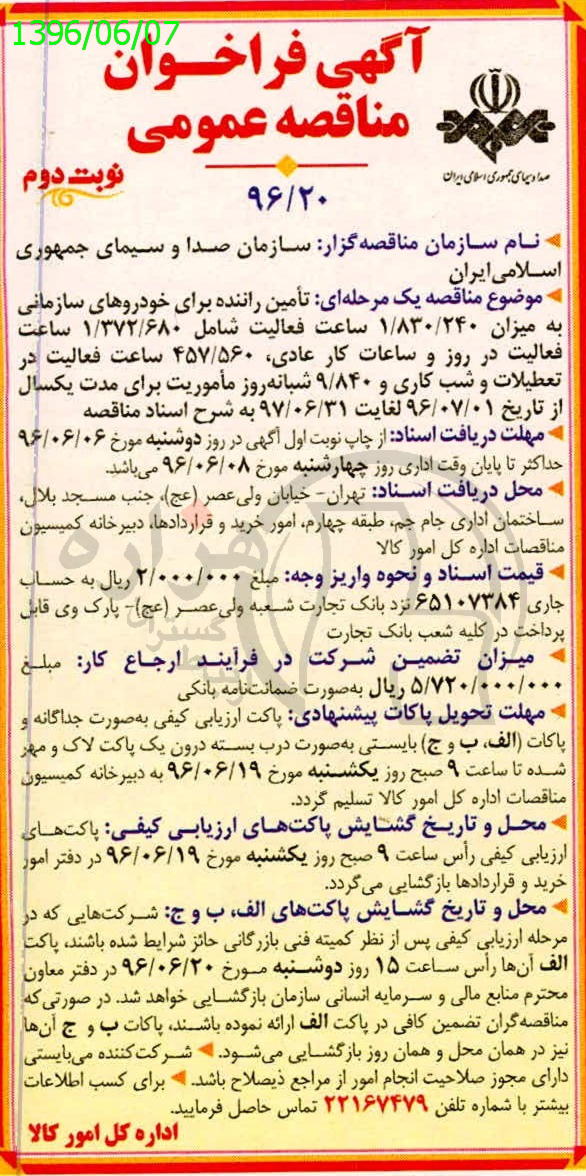 1396/06/07
آگهی فراخوان
مناقصه عمومی
صدا و سیمای جمهوری اسلامی ایران
نوبت دوم
۹۶/۲۰
نام سازمان مناقصه‌گزار: سازمان صدا و سیمای جمهوری
اسلامی‌ایران
موضوع مناقصه یک مرحله‌ای: تأمین راننده برای خودروهای سازمانی
به میزان ۱/۸۳۰/۲۴۰ ساعت فعالیت شامل ۱/۳۷۲/۶۸۰ ساعت
فعالیت در روز و ساعات کار عادی، ۴۵۷/۵۶۰ ساعت فعالیت در
تعطیلات و شب کاری و ۹/۸۴۰ شبانه‌روز مأموریت برای مدت یکسال
از تاریخ ۹۶/۰۷/۰۱ لغایت ۹۷/۰۶/۳۱ به شرح اسناد مناقصه
مهلت دریافت اسناد: از چاپ نوبت اول آگهی در روز دوشنبه مورخ ۹۶/۰۶/۰۶
حداکثر تا پایان وقت اداری روز چهارشنبه مورخ ۹۶/۰۶/۰۸ می‌باشد.
محل دریافت اسناد: تهران- خیابان ولی‌عصر (عج)، جنب مسجد بلال،
ساختمان اداری جام جم، طبقه چهارم، امور خرید و قراردادها، دبیرخانه کمیسیون
مناقصات اداره کل امور کالا
قیمت اسناد و نحوه واریز وجه: مبلغ ۲/۰۰۰/۰۰۰ ریال به حساب
جاری ۶۵۱۰۷۳۸۴ نزد بانک تجارت شعبه ولی‌عصر (عج)- پارک وی قابل
پرداخت در کلیه شعب بانک تجارت
میزان تضمین شرکت در فرآیند ارجاع کار: مبلغ
۵/۷۲۰/۰۰۰/۰۰۰ ریال به‌صورت ضمانت‌نامه بانکی
مهلت تحویل پاکات پیشنهادی: پاکت ارزیابی کیفی به‌صورت جداگانه و
پاکات (الف، ب و ج) بایستی به‌صورت درب بسته درون یک پاکت لاک و مهر
شده تا ساعت ۹ صبح روز یکشنبه مورخ ۹۶/۰۶/۱۹ به دبیرخانه کمیسیون
مناقصات اداره کل امور کالا تسلیم گردد.
محل و تاریخ گشایش پاکت‌های ارزیابی کیفی: پاکت‌های
ارزیابی کیفی رأس ساعت ۹ صبح روز یکشنبه مورخ ۹۶/۰۶/۱۹ در دفتر امور
خرید و قراردادها بازگشایی می‌گردد.
محل و تاریخ گشایش پاکت‌های الف، ب و ج: شرکت‌هایی که در
مرحله ارزیابی کیفی پس از نظر کمیته فنی بازرگانی حائز شرایط شده باشند، پاکت
الف آن‌ها رأس ساعت ۱۵ روز دوشنبه مورخ ۹۶/۰۶/۲۰ در دفتر معاون
محترم منابع مالی و سرمایه انسانی سازمان بازگشایی خواهد شد. در صورتی‌که
مناقصه‌گران تضمین کافی در پاکت الف ارائه نموده باشند، پاکات ب و ج آن‌ها
نیز در همان محل و همان روز بازگشایی می‌شود. شرکت‌کننده می‌بایستی
دارای مجوز صلاحیت انجام امور از مراجع ذیصلاح باشد. برای کسب اطلاعات
بیشتر با شماره تلفن ۲۲۱۶۷۴۷۹ تماس حاصل فرمایید.
اداره کل امور کالا